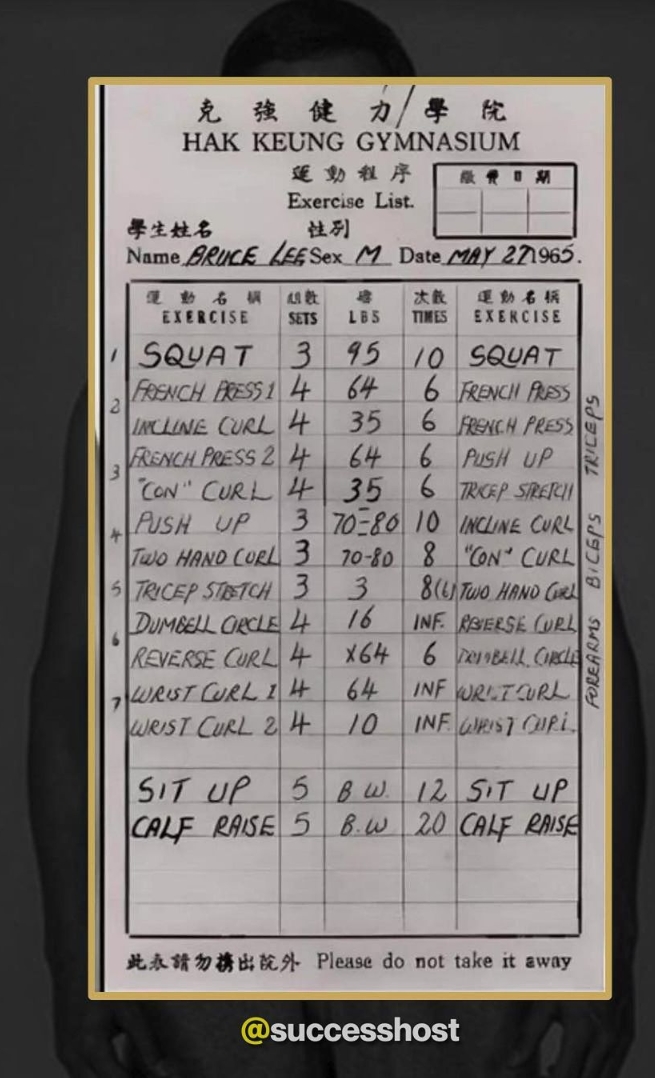 克強健力學院
HAK KEUNG GYMNASIUM
運動程序
繳費日期
Exercise List.
學生姓名 性別
Name BRUCE LEE Sex M Date MAY 27 1965.
運動名稱 組數 磅 次數 運動名稱
EXERCISE SETS LBS TIMES EXERCISE
1 SQUAT 3 95 10 SQUAT
FRENCH PRESS 1 4 64 6 FRENCH PRESS
2
INCLINE CURL 4 35 6 FRENCH PRESS
FRENCH PRESS 2 4 64 6 PUSH UP
3
"CON" CURL 4 35 6 TRICEP STRETCH
PUSH UP 3 70-80 10 INCLINE CURL
4
TWO HAND CURL 3 70-80 8 "CON" CURL
5 TRICEP STRETCH 3 3 8(6) TWO HAND CURL
DUMBELL CIRCLE 4 16 INF. REVERSE CURL
6
REVERSE CURL 4 X64 6 DUMBELL CIRCLE
WRIST CURL 1 4 64 INF WRIST CURL
7
WRIST CURL 2 4 10 INF. WRIST CURL
TRICEPS
BICEPS
FOREARMS
SIT UP 5 B.W. 12 SIT UP
CALF RAISE 5 B.W 20 CALF RAISE
請勿携出院外 Please do not take it away
@successhost